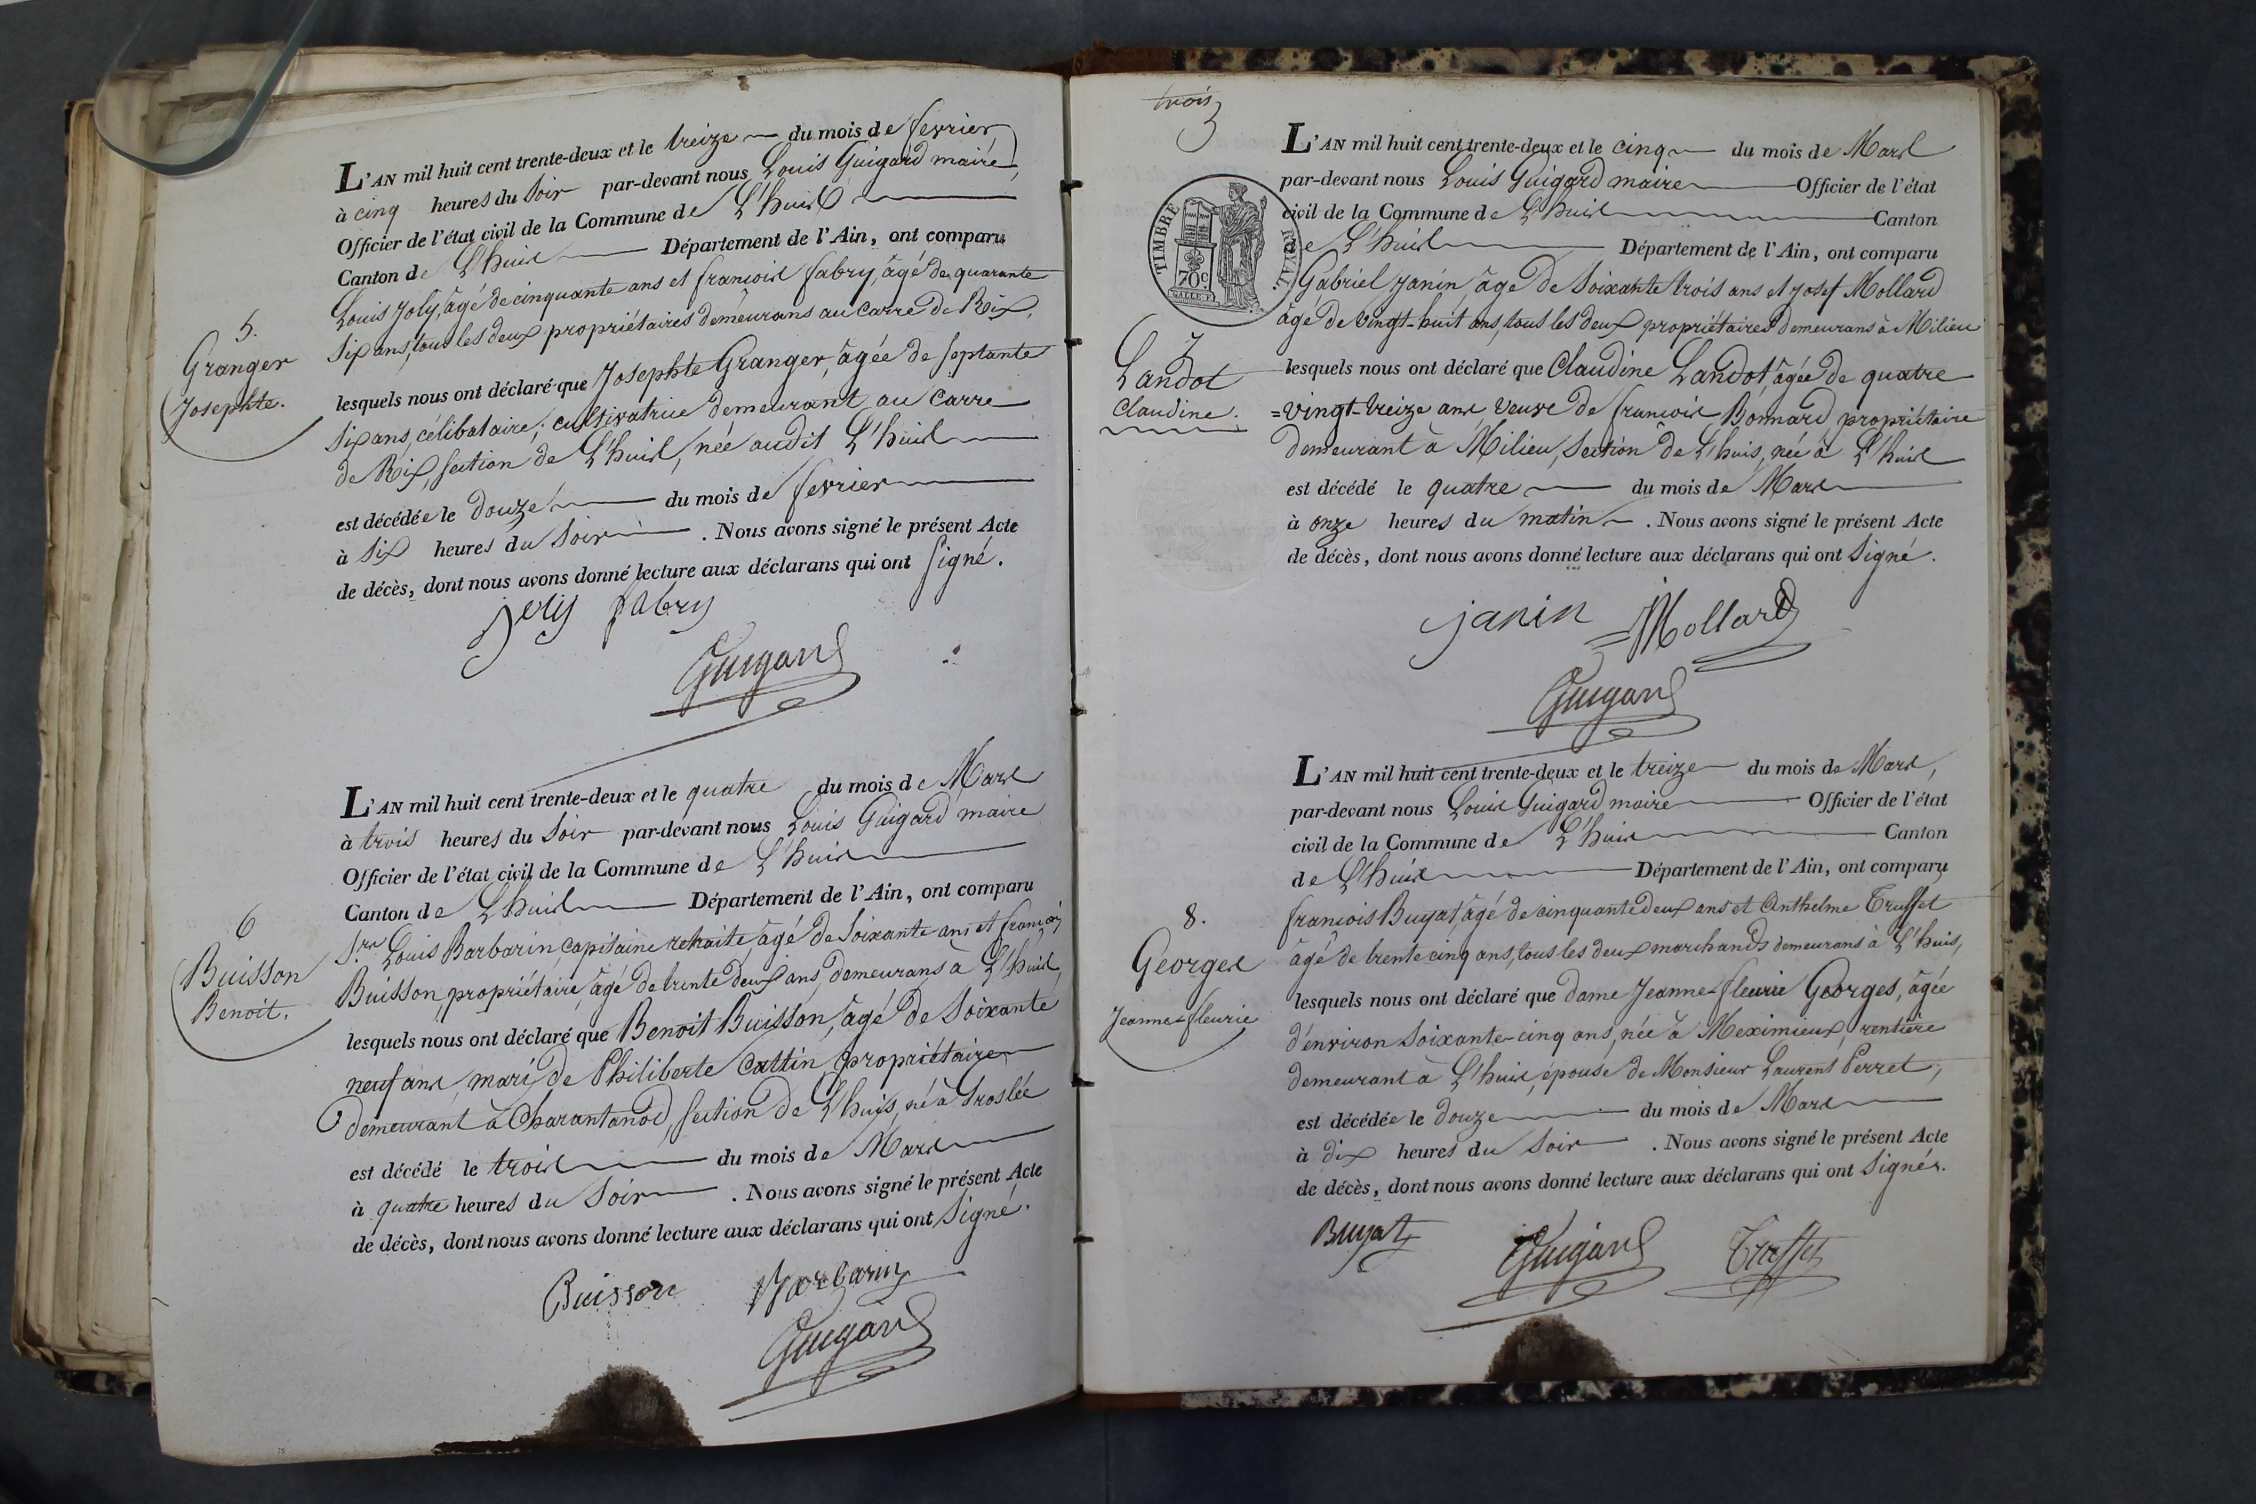 L'AN mil huit cent trente-deux et le treize du mois de fevrier
à cinq heures du soir par-devant nous Louis Guigard maire,
Officier de l'état civil de la Commune de L'huis
Canton de L'huis Département de l'Ain, ont comparu
Louis Joly, âgé de cinquante ans et francois fabry, âgé de quarante
six ans, tous les deux propriétaires demeurans au Carre de Rix,
5.
Granger
Josephte.
lesquels nous ont déclaré que Josephte Granger, âgée de septante
six ans, célibataire, cultivatrice demeurant au Carre
de Rix, section de L'huis, née audit L'huis
est décédée le douze du mois de fevrier
à six heures du soir . Nous avons signé le présent Acte
de décès, dont nous avons donné lecture aux déclarans qui ont signé.
joly fabry
Guigard
L'AN mil huit cent trente-deux et le quatre du mois de Mars
à trois heures du soir par-devant nous Louis Guigard maire
Officier de l'état civil de la Commune de L'huis
Canton de L'huis Département de l'Ain, ont comparu
Sre. Louis Barbarin capitaine retraité, âgé de soixante ans et françois
Buisson, propriétaire, âgé de trente deux ans, demeurans à L'huis,
6
Buisson
Benoit.
lesquels nous ont déclaré que Benoit Buisson, âgé de soixante
neuf ans, mari de Philiberte Cattin, propriétaire
demeurant à Charantanod, section de L'huis, né à Groslée
est décédé le trois du mois de Mars
à quatre heures du soir . Nous avons signé le présent Acte
de décès, dont nous avons donné lecture aux déclarans qui ont signé.
Buisson Barbarin
Guigard
trois
3
L'AN mil huit cent trente-deux et le cinq du mois de Mars
par-devant nous Louis Guigard maire Officier de l'état
civil de la Commune de L'huis Canton
de L'huis Département de l'Ain, ont comparu
TIMBRE ROYAL
70c
Gabriel Janin, âgé de soixante trois ans et Josef Mollard
âgé de vingt-huit ans, tous les deux propriétaires demeurans à Milieu
7
Landot
Claudine.
lesquels nous ont déclaré que Claudine Landot, âgée de quatre
=vingt-treize ans veuve de francois Bonnard, propriétaire
demeurant à Milieu, section de L'huis, née à L'huis
est décédé le quatre du mois de Mars
à onze heures du matin . Nous avons signé le présent Acte
de décès, dont nous avons donné lecture aux déclarans qui ont signé.
janin Mollard
Guigard
L'AN mil huit cent trente-deux et le treize du mois de Mars,
par-devant nous Louis Guigard maire Officier de l'état
civil de la Commune de L'huis Canton
de L'huis Département de l'Ain, ont comparu
francois Buyat, âgé de cinquante deux ans et Anthelme Truffet
âgé de trente cinq ans, tous les deux marchands demeurans à L'huis,
8.
Georges
Jeanne-fleurie
lesquels nous ont déclaré que dame Jeanne-fleurie Georges, âgée
d'environ soixante-cinq ans, née à Meximieux, rentière
demeurant à L'huis, épouse de Monsieur Laurent Perret,
est décédée le douze du mois de Mars
à dix heures du soir . Nous avons signé le présent Acte
de décès, dont nous avons donné lecture aux déclarans qui ont signés.
Buyat Guigard Truffet